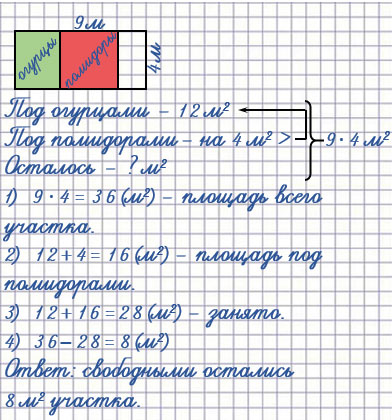 9м
огурцы
помидоры
4м
Под огурцами – 12 м²
Под помидорами – на 4 м² > 9·4 м²
Осталось – ? м²
1) 9·4=36(м²) – площадь всего
участка.
2) 12+4=16(м²) – площадь под
помидорами.
3) 12+16=28(м²) – занято.
4) 36–28=8(м²)
Ответ: свободными остались
8 м² участка.